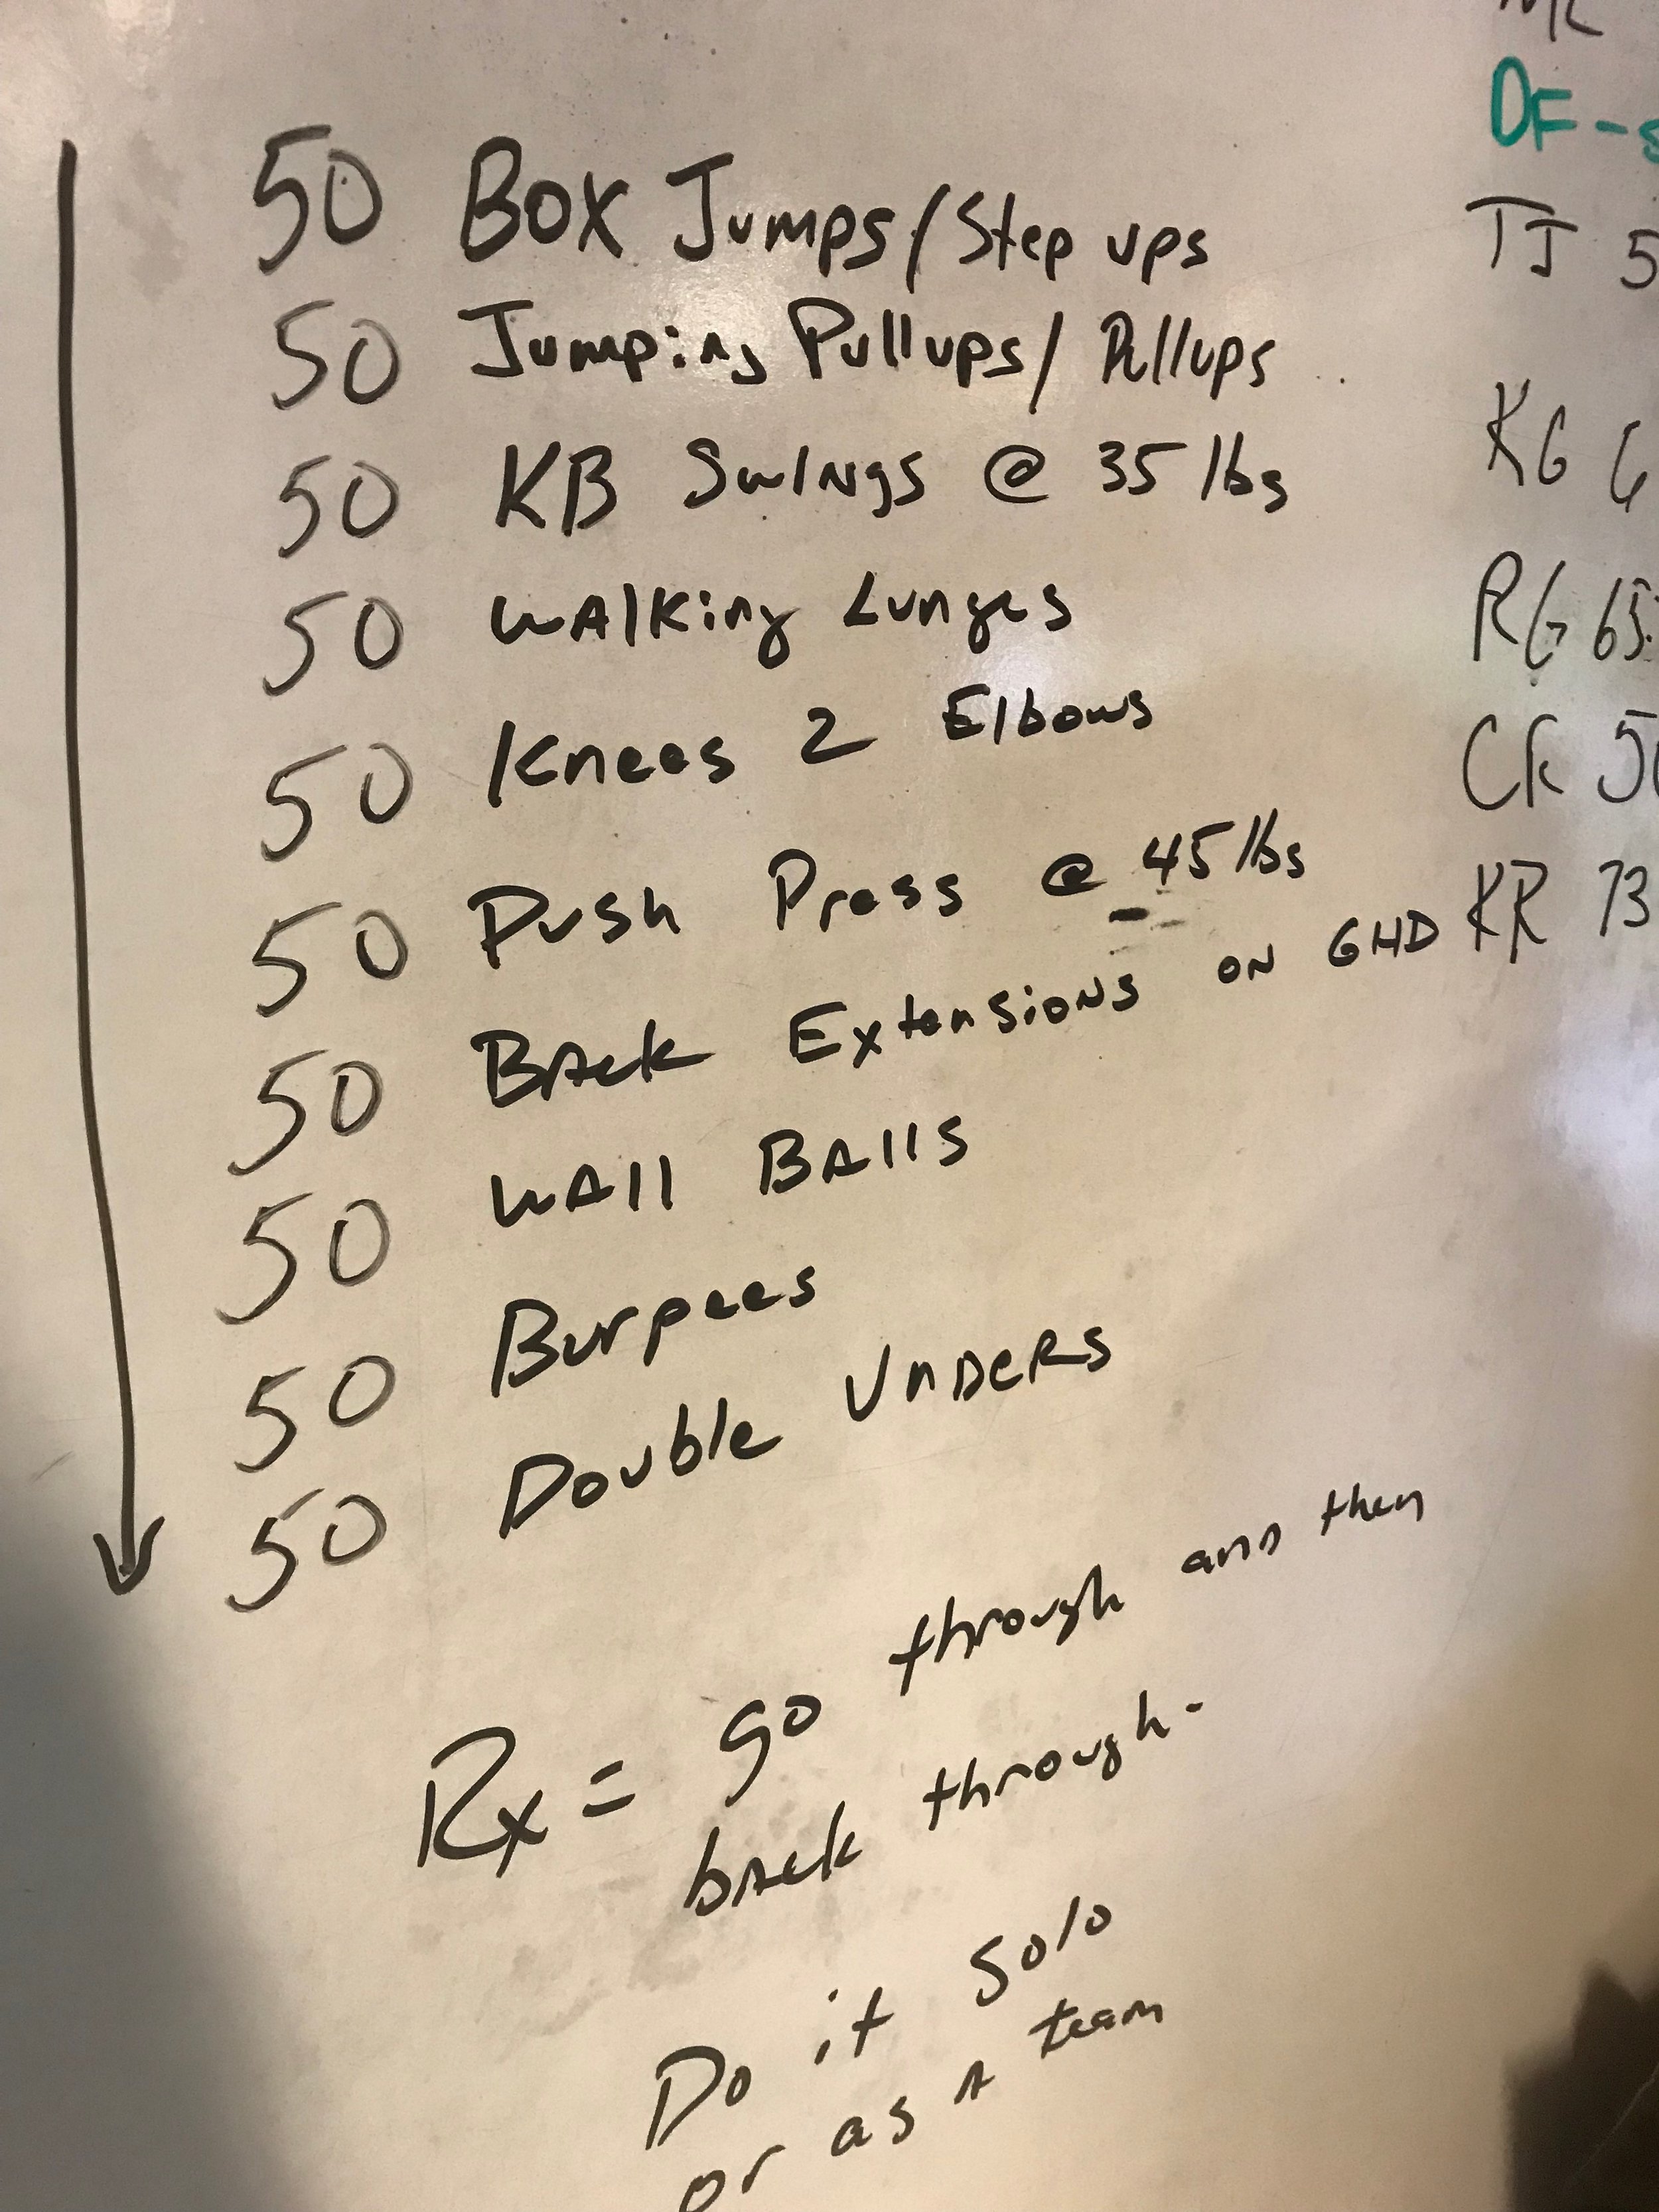 50 Box Jumps/Step ups
50 Jumping Pullups/ Pullups
50 KB Swings @ 35 lbs
50 Walking Lunges
50 Knees 2 Elbows
50 Push Press @ 45 lbs
50 Back Extensions on GHD
50 Wall Balls
50 Burpees
50 Double Unders
Rx = go through and then
back through.
Do it solo
or as a team
DF -
TJ 5
KG
RG 65
CK 5
KR 73